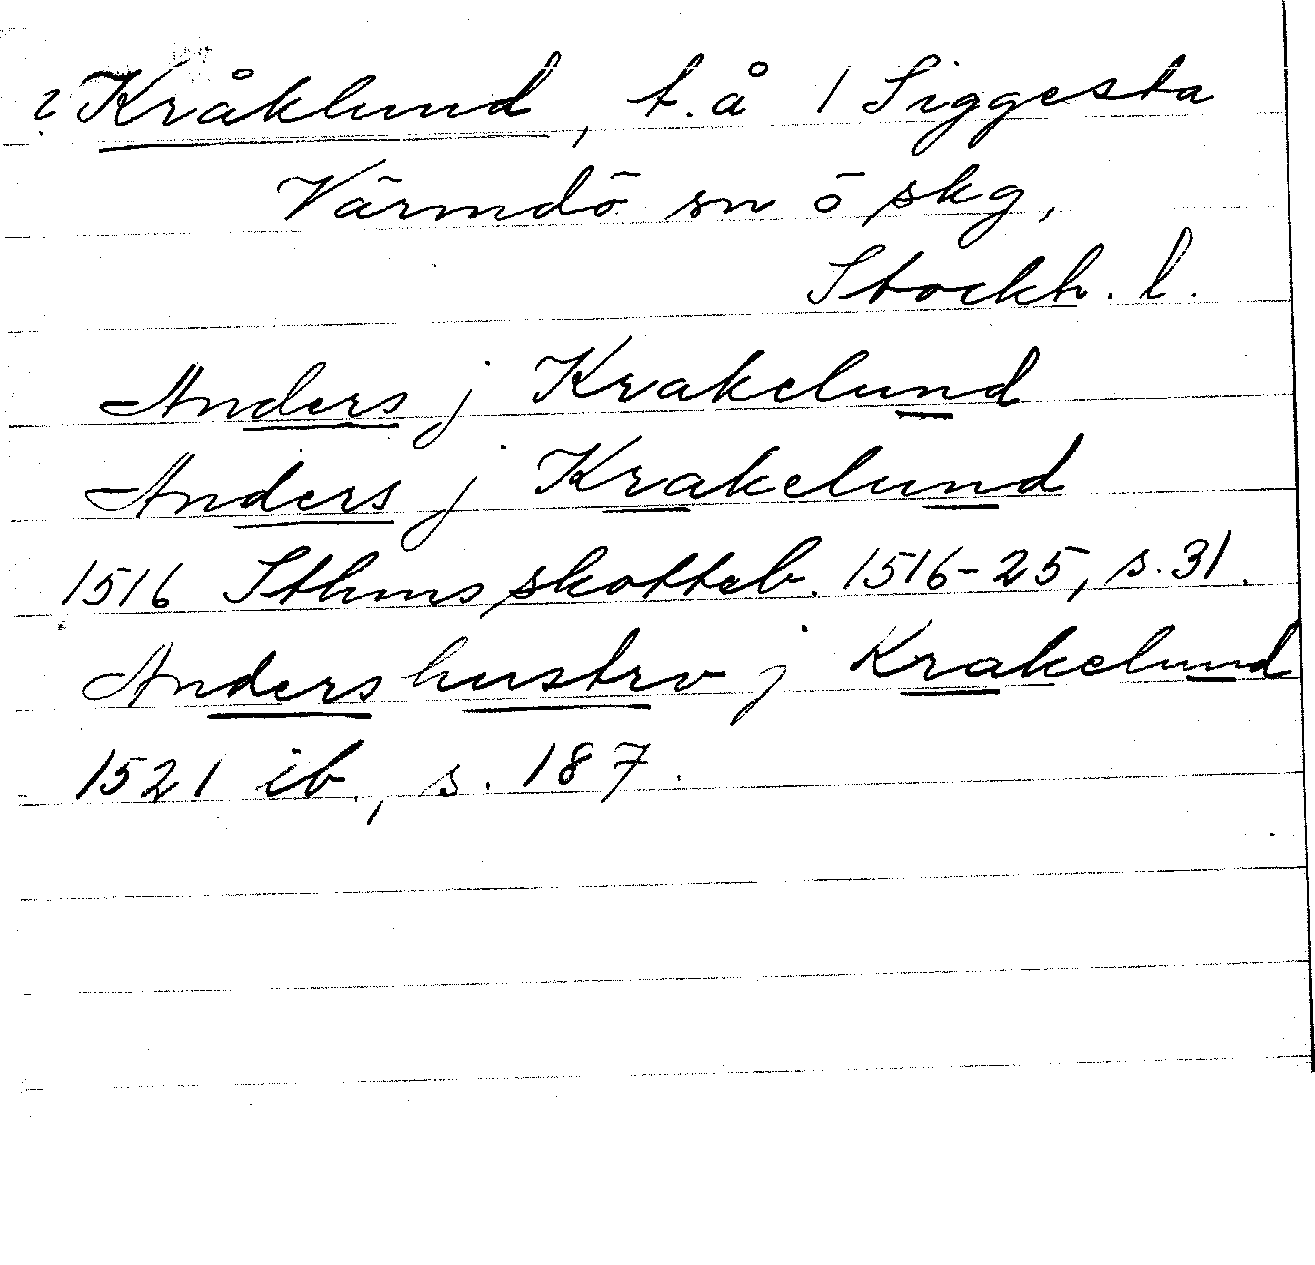 ? Kråklund, t. å 1 Siggesta
Värmdö sn o skg,
Stockh. l.
Anders j Krakelund
Anders j Krakelund
1516 Sthms skotteb. 1516-25, s. 31.
Anders hustrv j Krakelund
1521 ib., s. 187.